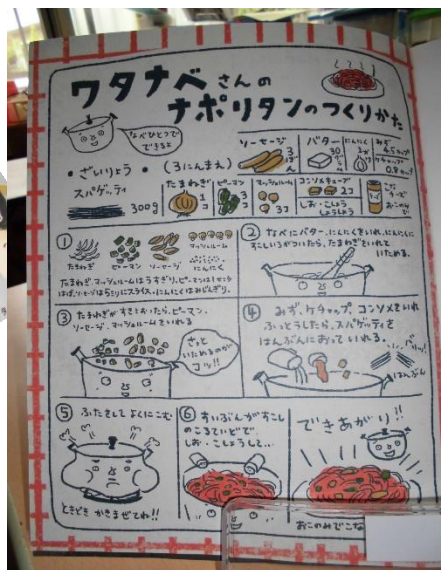 ワタナベさんの
ナポリタンのつくりかた
なべひとつで
できるよ
・ざいりょう・（3にんまえ）
スパゲッティ
300g
ソーセージ
3ぼん
バター
30
にんにく
みず
4.5カップ
ケチャップ
0.8カップ
たまねぎ
1コ
ピーマン
3コ
マッシュルーム
3コ
コンソメキューブ
2コ
しお・こしょう
しょうしょう
こな
チーズ
おこのみで
①
たまねぎ
ピーマン
ソーセージ
マッシュルーム
にんにく
たまねぎ、マッシュルームはうすぎり、ピーマンは
スライス、にんにくはみじんぎり。
② なべにバター、にんにくをいれ、にんにくに
すこしいろがついたら、たまねぎをいれて
いためる。
③ たまねぎがすきとおったら、ピーマン、
ソーセージ、マッシュルームをいれる
さっと
いためるのが
コツ!!
④ みず、ケチャップ、コンソメをいれ
ふっとうしたら、スパゲッティを
はんぶんにおっていれる。
バリッ!
はんぶん
⑤ ふたをして よくにこむ
ときどき かきまぜてね!!
⑥ すいぶんがすこし
のこるていどで
しお・こしょうして…
できあがり!!
おこのみでこな